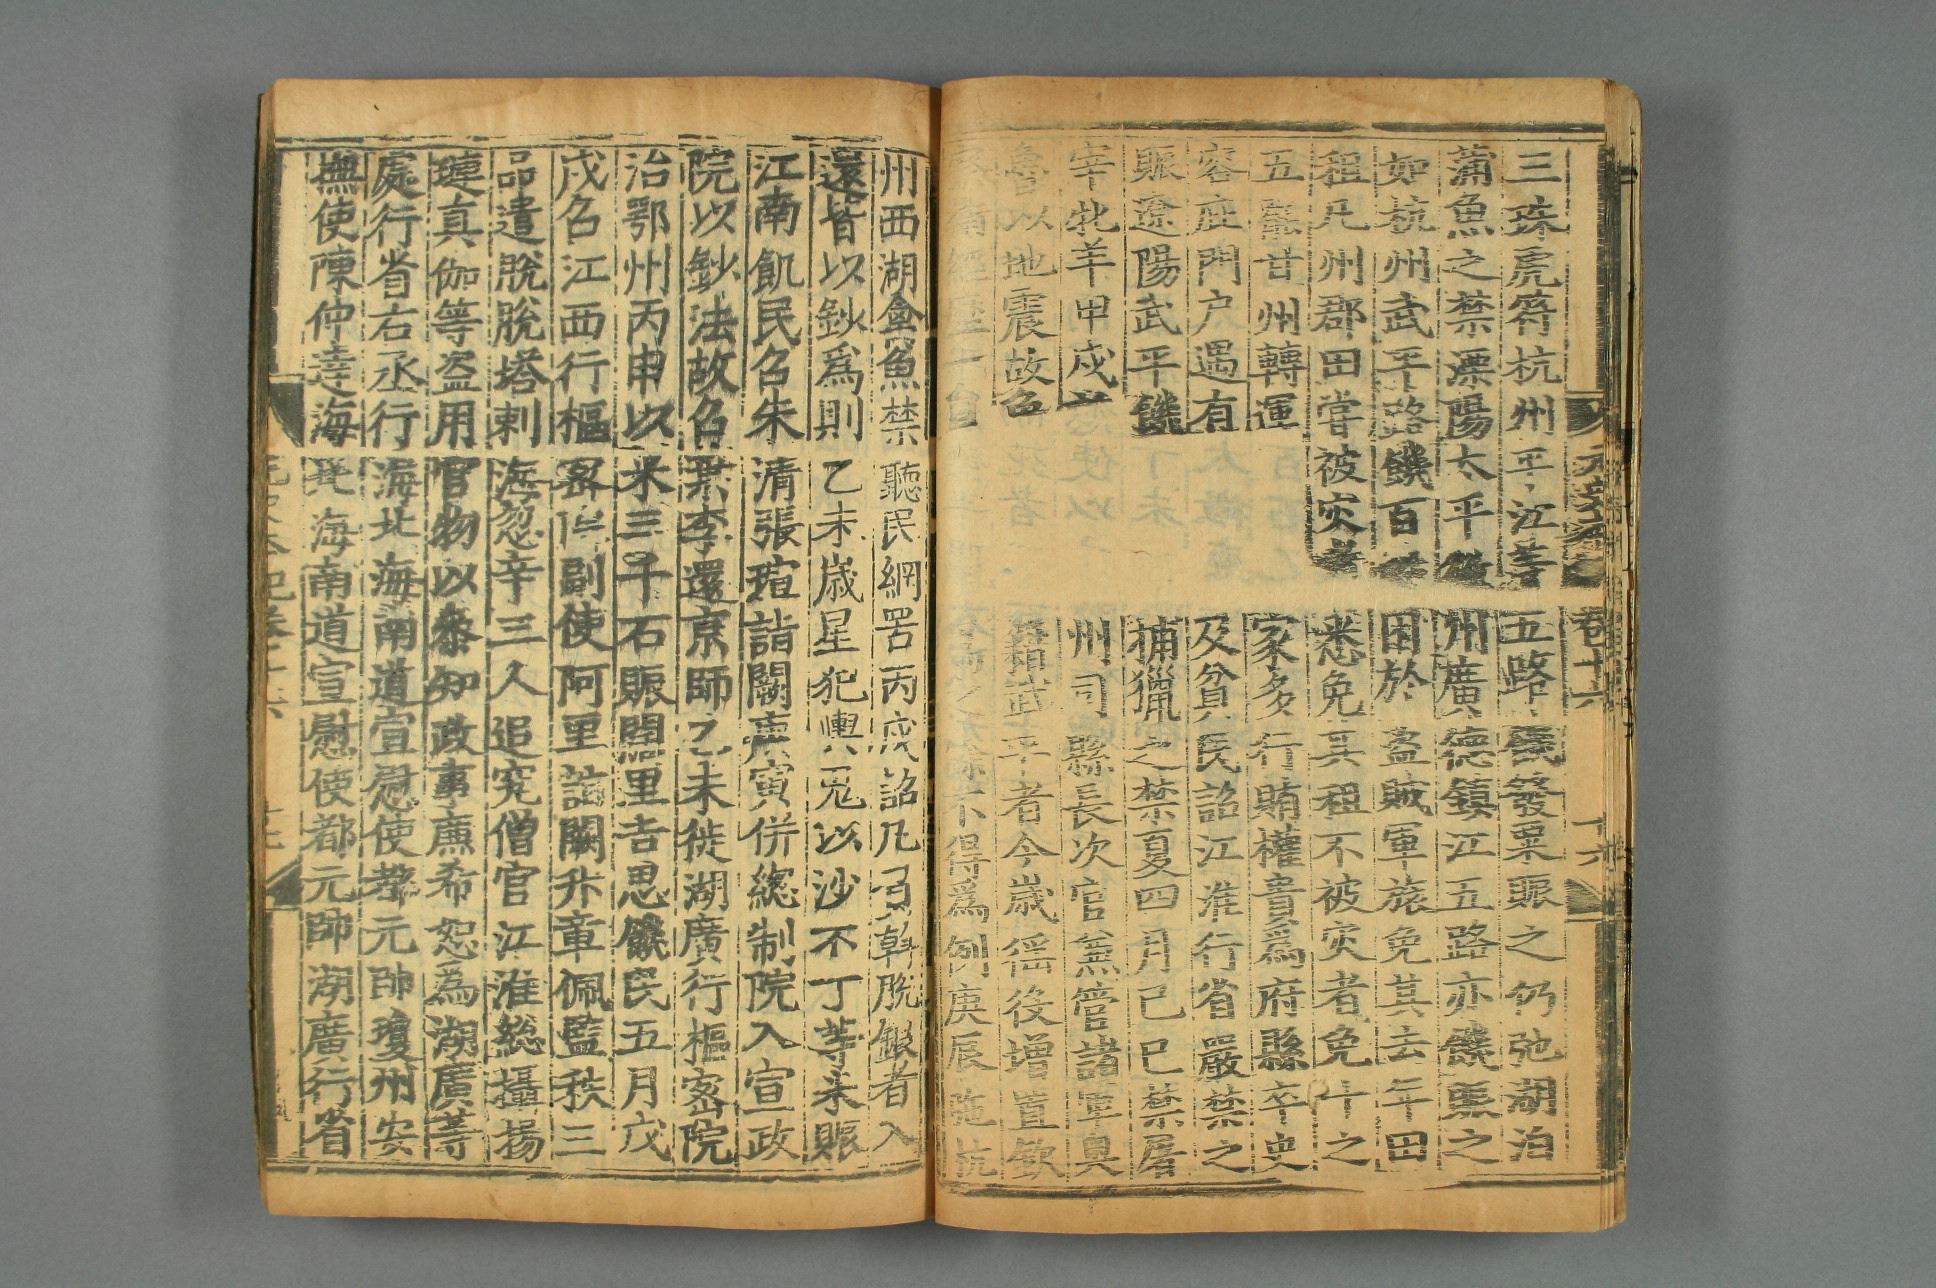 三珠虎符杭州平江等五路飢發粟賑之仍弛湖泊
蒲魚之禁溧陽太平徽州廣德鎮江五路亦饑賑之
如杭州武平路饑百姓困於盜賊軍旅免其去年田
租凡州郡田嘗被灾者悉免其租不被灾者免十之
五 甘州轉運 家多行賄權貴爲府縣卒吏
容庇門户遇有 及貧民詔江淮行省嚴禁之
賑遼陽武平饑 捕獵之禁夏四月己巳禁屠
宰牝羊甲戌 州司縣長次官兼管諸軍奧
魯以地震故 籍武平者今歲徭役增置欽
不得爲例庚辰 杭
州西湖禽魚禁聽民網罟丙戌詔凡 斡脫銀者入
還皆以鈔爲則乙未歲星犯輿鬼以沙不丁等米賑
江南飢民召朱清張瑄詣闕庚寅併總制院入宣政
院以鈔法故召葉李還京師乙未徙湖廣行樞密院
治鄂州丙申以米三千石賑闊里吉思饑民五月戊
戌召江西行樞密院副使阿里詣闕升章佩監秩三
品遣脫脫塔剌海忽辛三人追究僧官江淮総攝揚
璉真伽等盗用官物以叅知政事廉希恕為湖廣等
處行省右丞行海北海南道宣慰使都元帥瓊州安
撫使陳仲達海 海南道宣慰使都元帥湖廣行省
卷十六
十六